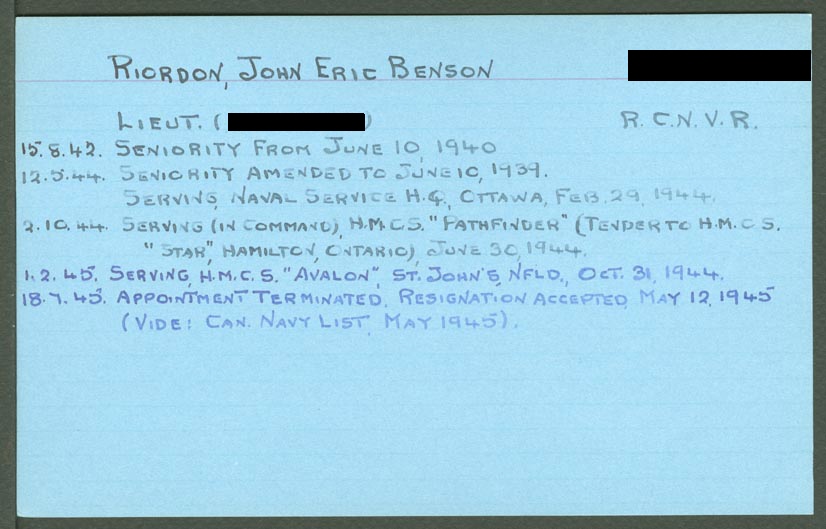 RIORDON, JOHN ERIC BENSON
LIEUT. ( ) R.C.N.V.R.
15.8.42. SENIORITY FROM JUNE 10, 1940
12.5.44. SENIORITY AMENDED TO JUNE 10, 1939.
SERVING, NAVAL SERVICE H.Q., OTTAWA, FEB. 29, 1944.
2.10.44. SERVING (IN COMMAND), H.M.C.S. "PATHFINDER" (TENDER TO H.M.C.S.
"STAR", HAMILTON, ONTARIO), JUNE 30, 1944.
1.2.45. SERVING, H.M.C.S. "AVALON", ST. JOHN'S, NFLD., OCT. 31, 1944.
18.7.45. APPOINTMENT TERMINATED, RESIGNATION ACCEPTED, MAY 12, 1945
(VIDE: CAN. NAVY LIST, MAY 1945).